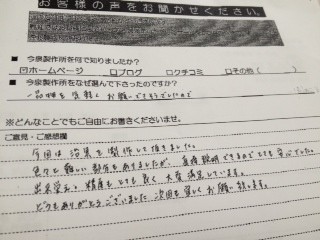 お客様の声をお聞かせください。
■ 今泉製作所を何で知りましたか？
☑ホームページ □ブログ □クチコミ □その他（ ）
■ 今泉製作所をなぜ選んで下さったのですか？
一品物も気軽にお願いできそうでしたので
※どんなことでもご自由にお書きくださいませ。
ご意見・ご感想欄
今回は治具を製作して頂きました。
色々と難しい部分もありましたが、直接説明できるのでとても安心でした。
出来栄え、精度もとても良く大変満足しています。
どうもありがとうございました。次回も宜しくお願い致します。